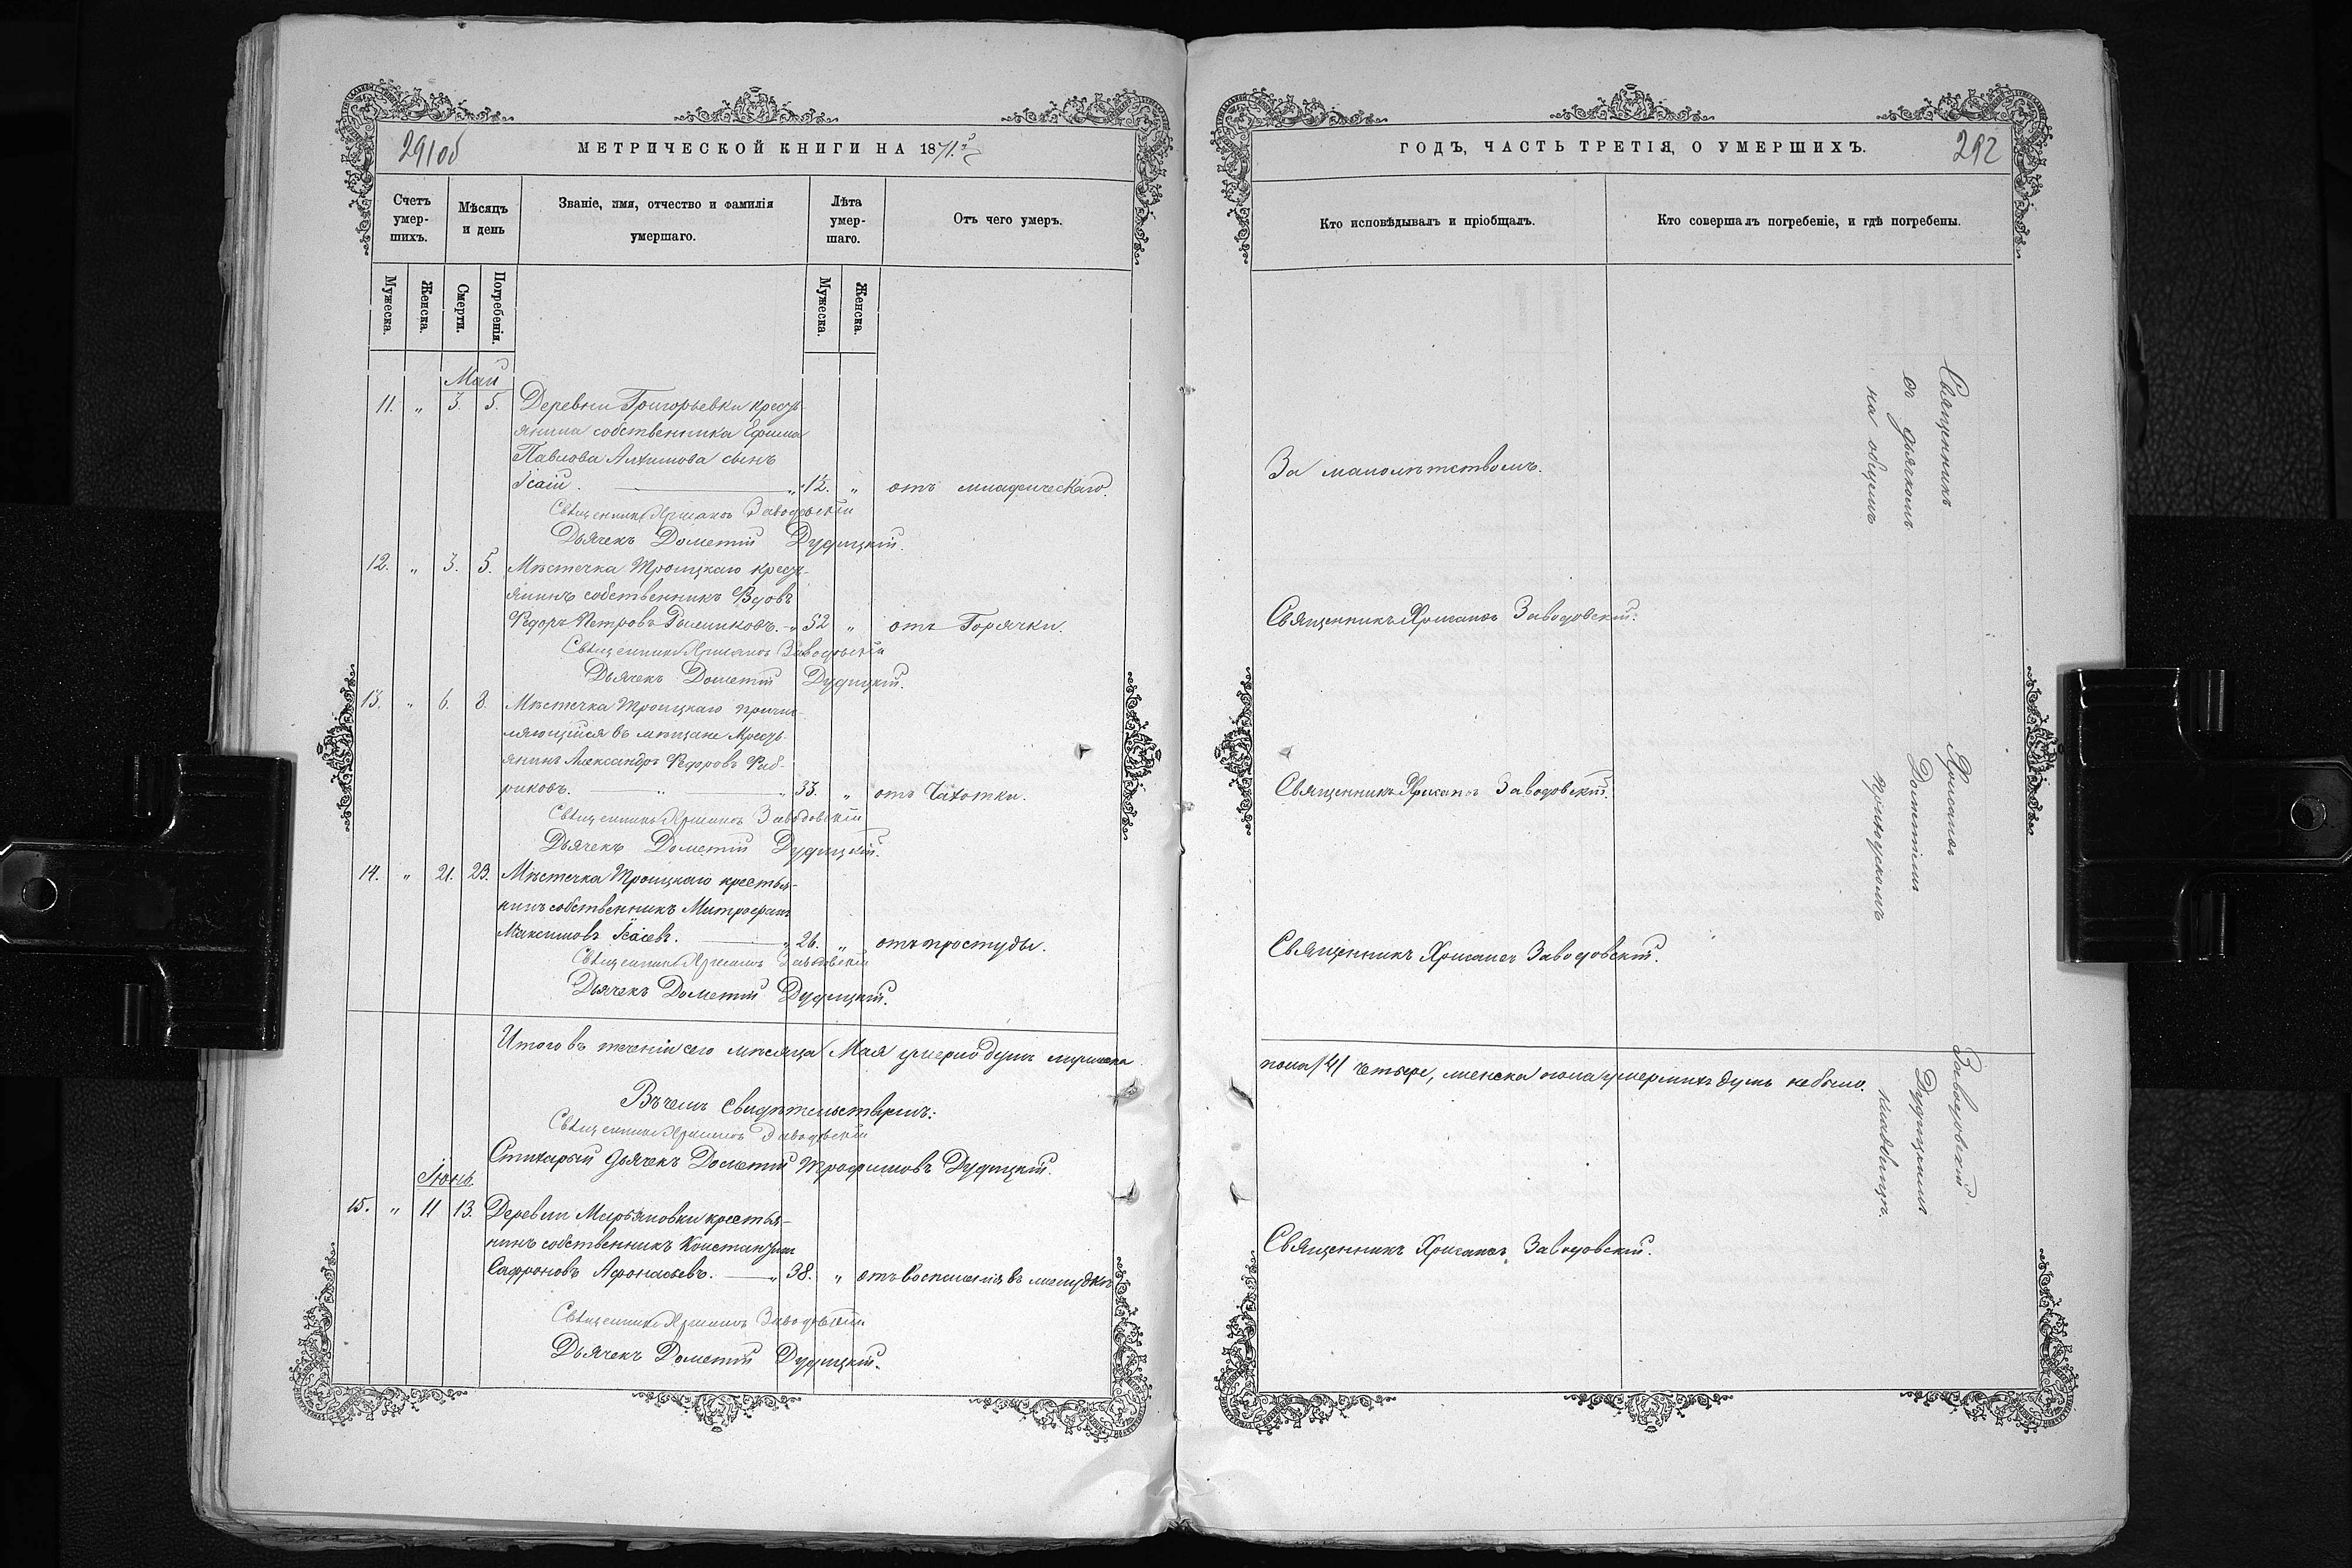 291об
МЕТРИЧЕСКОЙ КНИГИ НА 1871й
Счетъ умер-шихъ.
Мѣсяцъ и день
Званіе, имя, отчество и фамилія умершаго.
Лѣта умер-шаго.
Отъ чего умеръ.
Мужеска.
Женска.
Смерти.
Погребенія.
Мужеска.
Женска.
Май
11. „ 3. 5. Деревни Григорьевки кресть-
янина собственника Ефима
Павлова сынъ
Ісаій. „ 12. „ отъ
Священникъ Хрисанѳъ Заводовскій
Дьячекъ Дометій Дудицкій.
12. „ 3. 5. Мѣстечка Троицкаго кресть-
янинъ собственникъ Вдовъ
Ѳедоръ Петровъ „ 52 „ отъ Горячки.
Священникъ Хрисанѳъ Заводовскій
Дьячекъ Дометій Дудицкій.
13. „ 6. 8. Мѣстечка Троицкаго причи-
ляющійся въ мѣщане Кресть-
янинъ Александръ Ѳедоровъ Фаб-
риковъ. „ „ 33. „ отъ Чахотки.
Священникъ Хрисанѳъ Заводовскій
Дьячекъ Дометій Дудицкій.
14. „ 21. 23. Мѣстечка Троицкаго крестья-
нинъ собственникъ Митрофанъ
Максимовъ Ісаевъ. „ 26. „ отъ простуды.
Священникъ Хрисанѳъ Заводовскій
Дьячекъ Дометій Дудицкій.
Итого въ теченіи сего мѣсяца Мая умерло душъ мужеска
Въ чемъ свидѣтельствуемъ:
Священникъ Хрисанѳъ Заводовскій
Стихарный дьячекъ Дометій Трофимовъ Дудицкій.
Іюнь
15. „ 11 13. Деревни Марьяновки крестья-
нинъ собственникъ Константинъ
Сафроновъ Афонасьевъ. „ 38. „ отъ воспаленія въ желудкѣ
Священникъ Хрисанѳъ Заводовскій
Дьячекъ Дометій Дудицкій.
ГОДЪ, ЧАСТЬ ТРЕТІЯ, О УМЕРШИХЪ.
292
Кто исповѣдывалъ и пріобщалъ.
Кто совершалъ погребеніе, и гдѣ погребены.
За малолѣтствомъ.
Священникъ Хрисанѳъ Заводовскій.
Священникъ Хрисанѳъ Заводовскій.
Священникъ Хрисанѳъ Заводовскій.
пола /4/ четыре, женска пола умершихъ душъ не было.
Священникъ Хрисанѳъ Заводовскій.
Священникъ Хрисанѳъ Заводовскій
съ дьячкомъ Дометіемъ Дудицкимъ
на общемъ приходскомъ кладбищѣ.